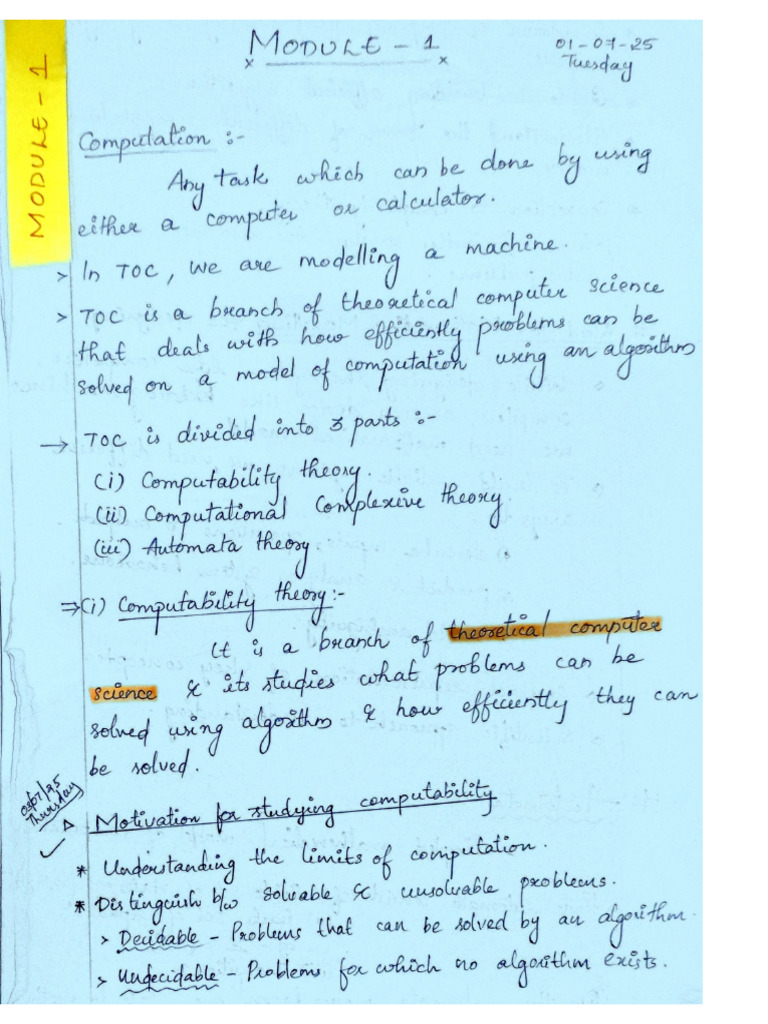 MODULE - 1
01-07-25
Tuesday
MODULE - 1
Computation :-
Any task which can be done by using
either a computer or calculator.
> In TOC, we are modelling a machine.
> TOC is a branch of theoretical computer science
that deals with how efficiently problems can be
solved on a model of computation using an algorithm
→ TOC is divided into 3 parts :-
(i) Computability theory.
(ii) Computational Complexive theory.
(iii) Automata theory
⇒(i) Computability theory:-
It is a branch of theoretical computer
science & its studies what problems can be
solved using algorithm & how efficiently they can
be solved.
/25
Thursday
Δ Motivation for studying computability
✓
* Understanding the limits of computation.
* Distinguish b/w solvable & unsolvable problems.
> Decidable - Problems that can be solved by an algorithm.
> Undecidable - Problems for which no algorithm exists.